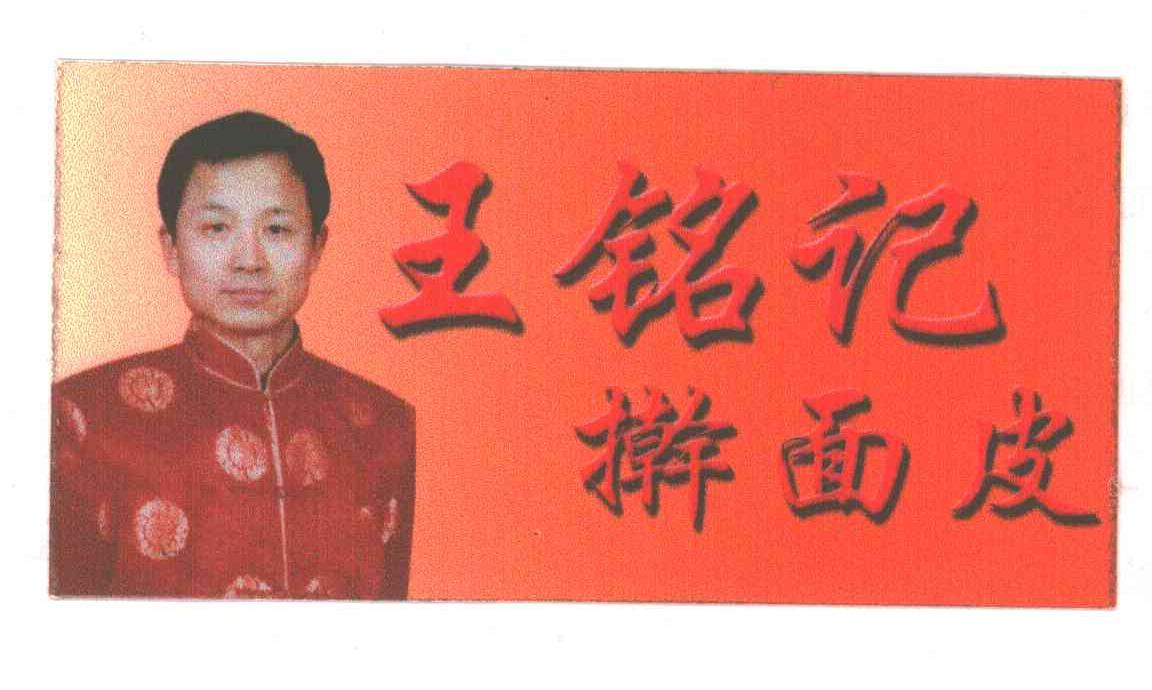 王铭记
擀面皮